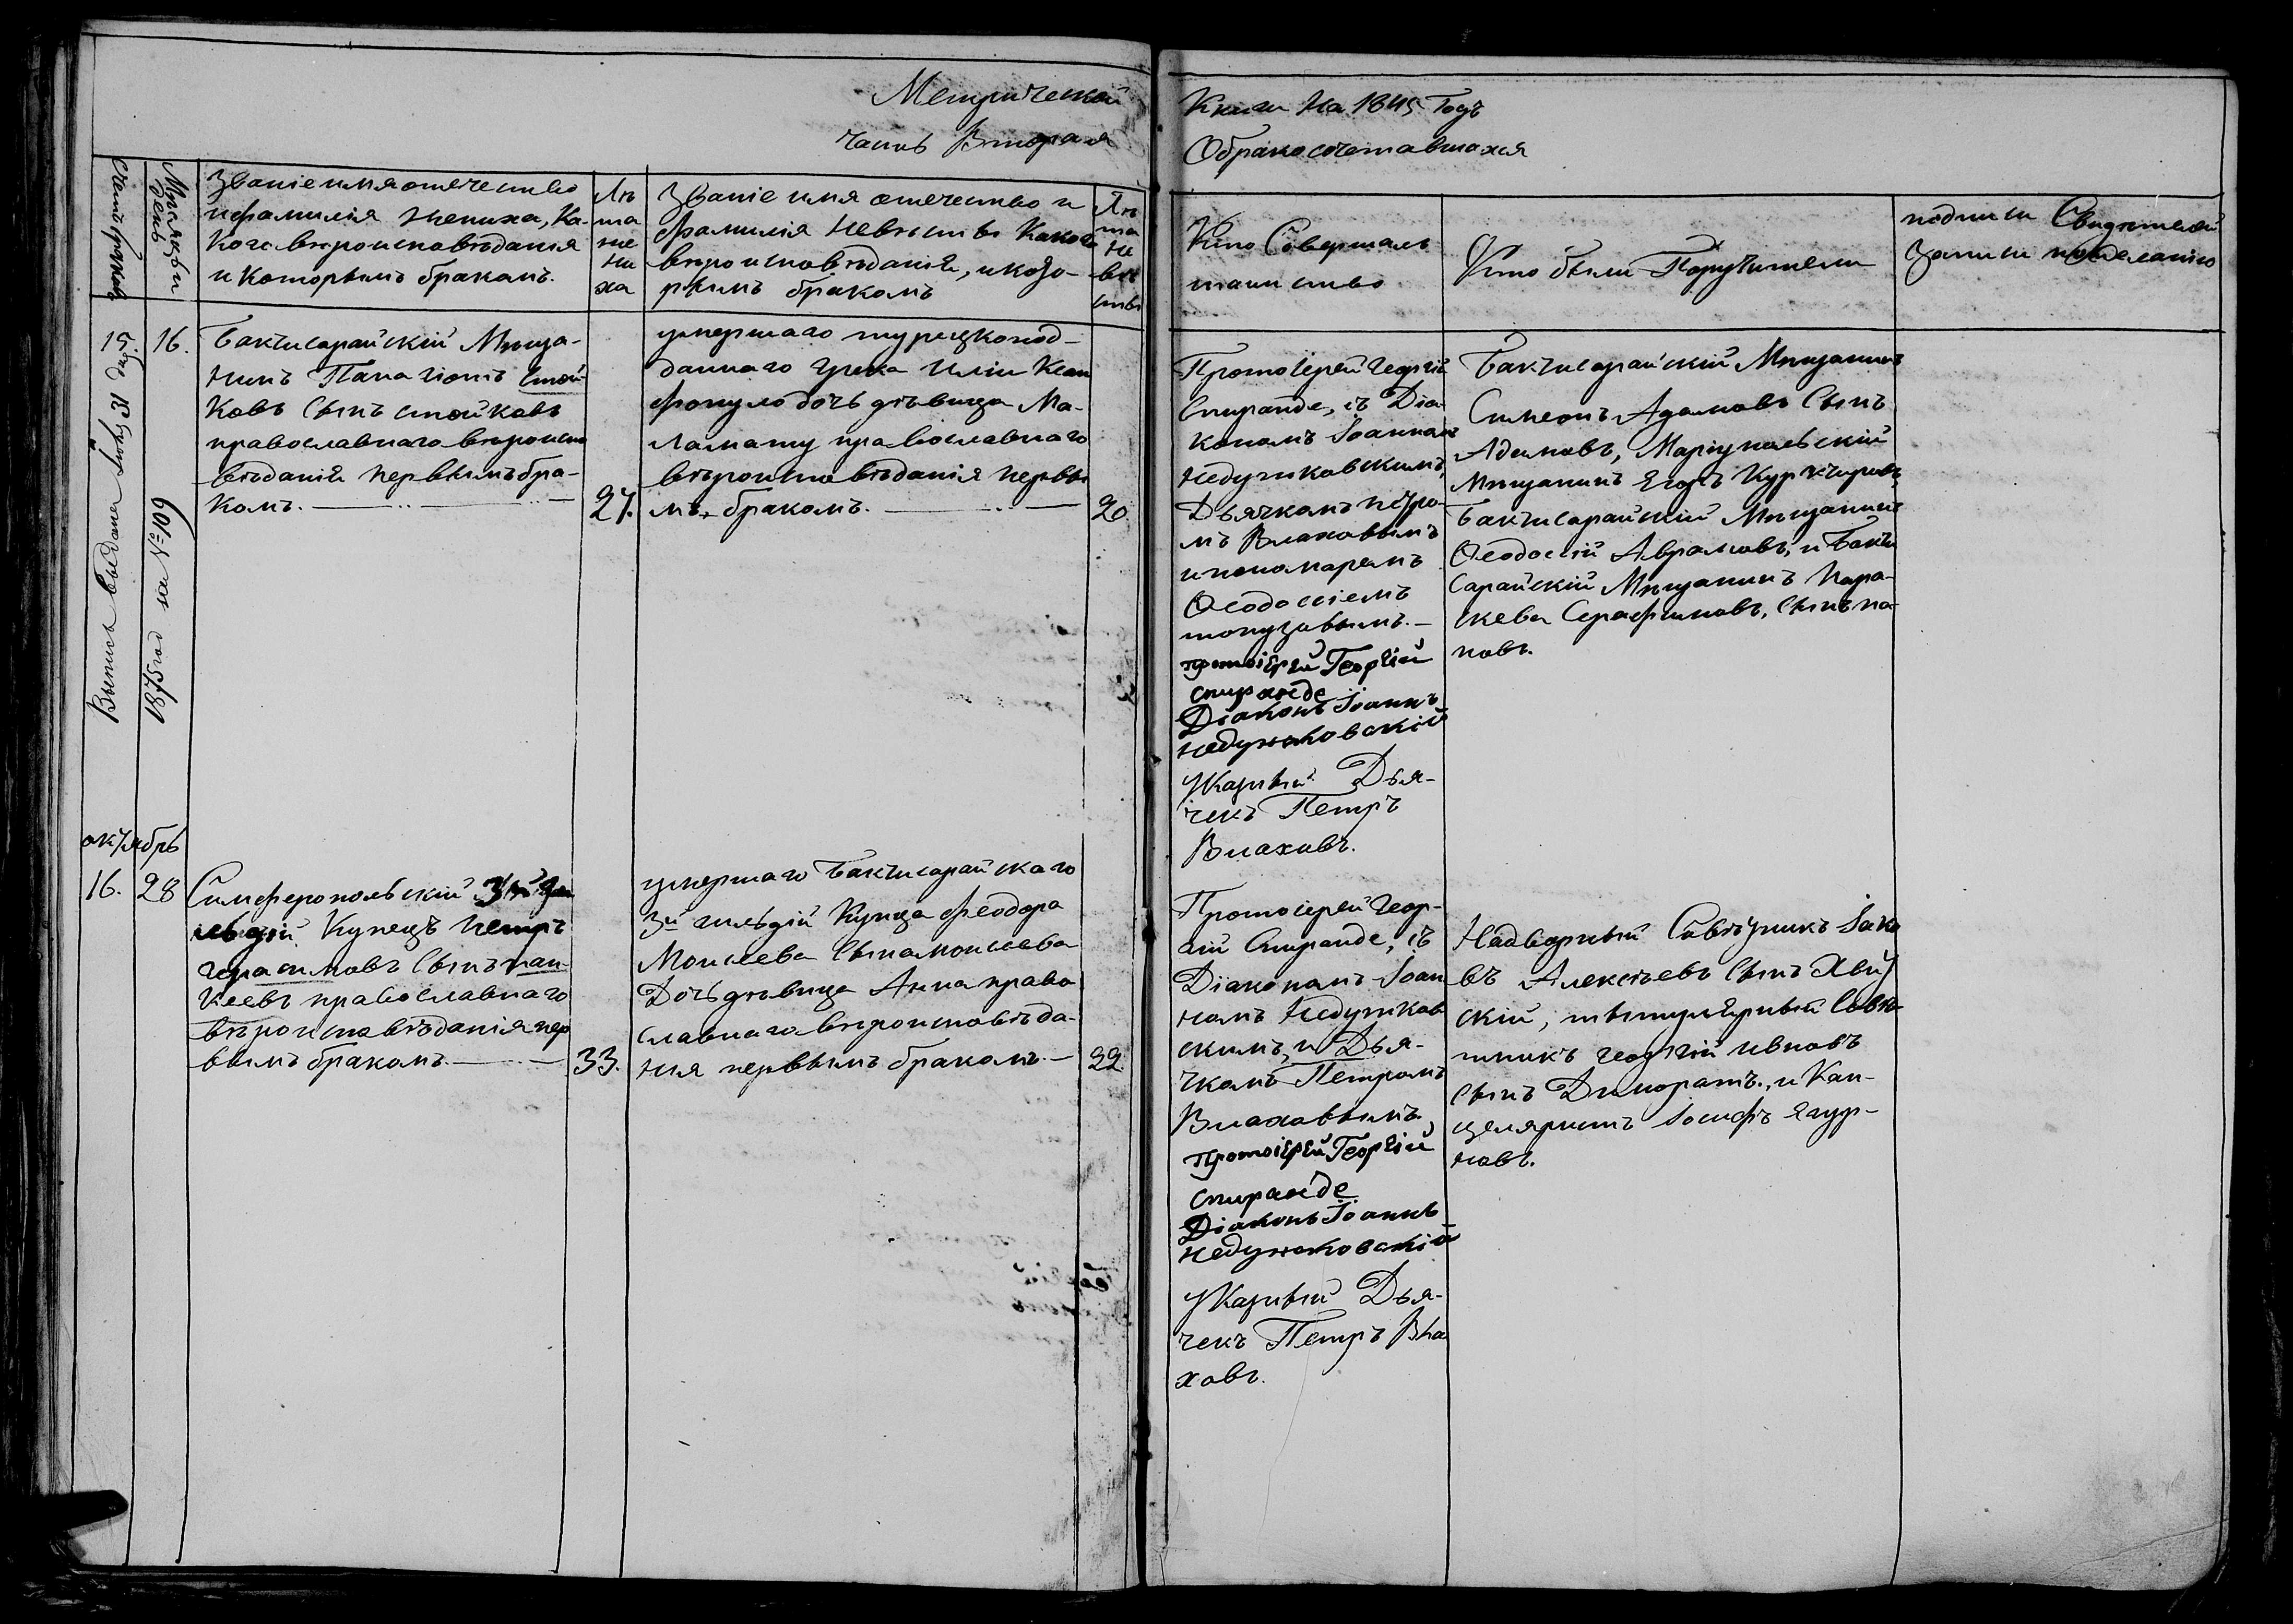 Метрической
часть Вторая
Книги на 1845 Годъ
О бракосочетавшихся
Счетъ браковъ
Мѣсяцъ и день
Званіе имя отечество
и фамилія жениха, ка-
кого вѣроисповѣданія
и которымъ бракомъ.
Лѣ
та
же
ни
ха
Званіе имя отечество и
фамилія невѣсты какого
вѣроисповѣданія, и кото-
рымъ бракомъ
Лѣ
та
не
вѣ
сты
Кто Совершалъ
таинство
Кто были Поручители
подписи Свидѣтелей
записи по желанію
15
16.
Бакчисарайскій Мѣща-
нинъ Панагіотъ Стой-
ковъ Сынъ стойковъ
православнаго вѣроиспо
вѣданія первымъ бра-
комъ.
27.
умершаго турецкопод-
даннаго грека Иліи Ксан
фопуло дочь дѣвица Ма-
ламату православнаго
вѣроисповѣданія первы
мъ бракомъ.
20
Протоіерей Георгій
Спиранде, съ Діа
кономъ Іоанномъ
Недзниковскимъ,
Дьячкомъ петро-
мъ Влаховымъ
и пономаремъ
Ѳеодосіемъ
топузовымъ.
протоіерей Георгій
спиранде
Діаконъ Іоаннъ
Указный Дья-
чекъ Петръ
Влаховъ.
Бакчисарайскій Мѣщанинъ
Симеонъ Адамовъ Сынъ
Адамовъ, Маріупольскій
Мѣщанинъ Егоръ
Бакчисарайскій Мѣщанинъ
Ѳеодосій Аврамовъ, и Бакчи
Сарайскій Мѣщанинъ Пара-
скева Серафимовъ, Сынъ по-
повъ.
Выпись Выдана
1875 года за № 109
октябрь
16.
28
Симферопольскій 3й ги
льдіи Купецъ петръ
герасимовъ Сынъ пан-
кеевъ православнаго
вѣроисповѣданія пер
вымъ бракомъ.
33.
умершаго Бакчисарайскаго
3й гильдіи Купца Феодора
Моисеева Сына моисеева
Дочь дѣвица Анна право
славнаго вѣроисповѣда-
нія первымъ бракомъ.
22
Протоіерей Геор-
гій Спиранде, съ
Діакономъ Іоан
номъ
скимъ, и Дья-
чкомъ Петромъ
Влаховымъ.
протоіерей Георгій
спиранде
Діаконъ Іоаннъ
Указный Дья-
чекъ Петръ Вла
ховъ.
Надворный Совѣтникъ Іако
въ Алексѣевъ Сынъ
скій, титулярный Совѣ
тникъ георгій
Сынъ и Кан-
целяристъ Іосифъ Ягур-
новъ.